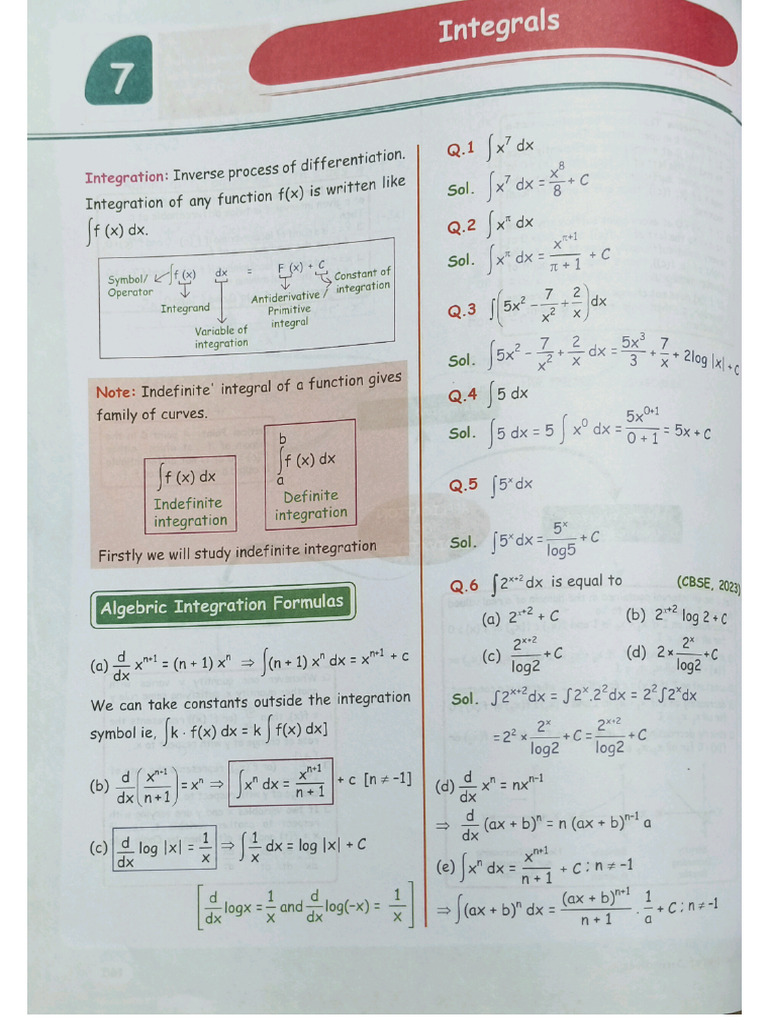 Integrals
7
Integration: Inverse process of differentiation.
Integration of any function f(x) is written like
∫f (x) dx.
Symbol/ Operator
∫f (x) dx = F (x) + C
Integrand
Variable of integration
Antiderivative / Primitive integral
Constant of integration
Note: Indefinite' integral of a function gives
family of curves.
∫f (x) dx
Indefinite
integration
b
∫f (x) dx
a
Definite
integration
Firstly we will study indefinite integration
Algebric Integration Formulas
(a) d/dx xⁿ⁺¹ = (n + 1) xⁿ ⇒ ∫(n + 1) xⁿ dx = xⁿ⁺¹ + c
We can take constants outside the integration
symbol ie, ∫k · f(x) dx = k ∫ f(x) dx]
(b) d/dx (xⁿ⁺¹/(n + 1)) = xⁿ ⇒ ∫xⁿ dx = xⁿ⁺¹/(n + 1) + c [n ≠ -1]
(c) d/dx log |x| = 1/x ⇒ ∫1/x dx = log |x| + C
[d/dx logx = 1/x and d/dx log(-x) = 1/x]
Q.1 ∫x⁷ dx
Sol. ∫x⁷ dx = x⁸/8 + C
Q.2 ∫x^π dx
Sol. ∫x^π dx = x^(π+1)/(π + 1) + C
Q.3 ∫(5x² - 7/x² + 2/x)dx
Sol. ∫5x² - 7/x² + 2/x dx = 5x³/3 + 7/x + 2log |x| + C
Q.4 ∫5 dx
Sol. ∫5 dx = 5 ∫ x⁰ dx = 5x⁰⁺¹/(0 + 1) = 5x + C
Q.5 ∫5ˣ dx
Sol. ∫5ˣ dx = 5ˣ/log5 + C
Q.6 ∫2ˣ⁺² dx is equal to (CBSE, 2023)
(a) 2ˣ⁺² + C (b) 2ˣ⁺² log 2 + C
(c) 2ˣ⁺²/log2 + C (d) 2× 2ˣ/log2 + C
Sol. ∫2ˣ⁺²dx = ∫2ˣ.2²dx = 2²∫2ˣdx
= 2² × 2ˣ/log2 + C = 2ˣ⁺²/log2 + C
(d) d/dx xⁿ = nxⁿ⁻¹
⇒ d/dx (ax + b)ⁿ = n (ax + b)ⁿ⁻¹ a
(e) ∫xⁿ dx = xⁿ⁺¹/(n + 1) + C ; n ≠ -1
⇒ ∫(ax + b)ⁿ dx = (ax + b)ⁿ⁺¹/(n + 1) . 1/a + C ; n ≠ -1